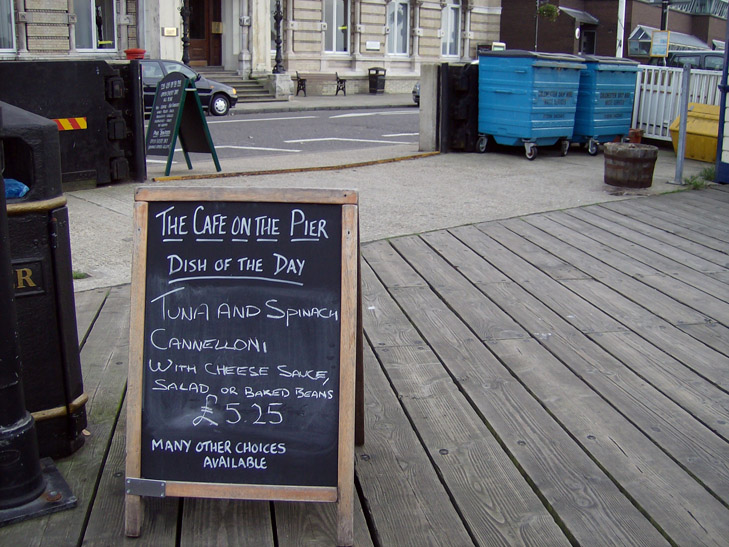 THE CAFE ON THE PIER
DISH OF THE DAY
TUNA AND SPINACH
CANNELLONI
WITH CHEESE SAUCE,
SALAD OR BAKED BEANS
£5.25
MANY OTHER CHOICES
AVAILABLE
R